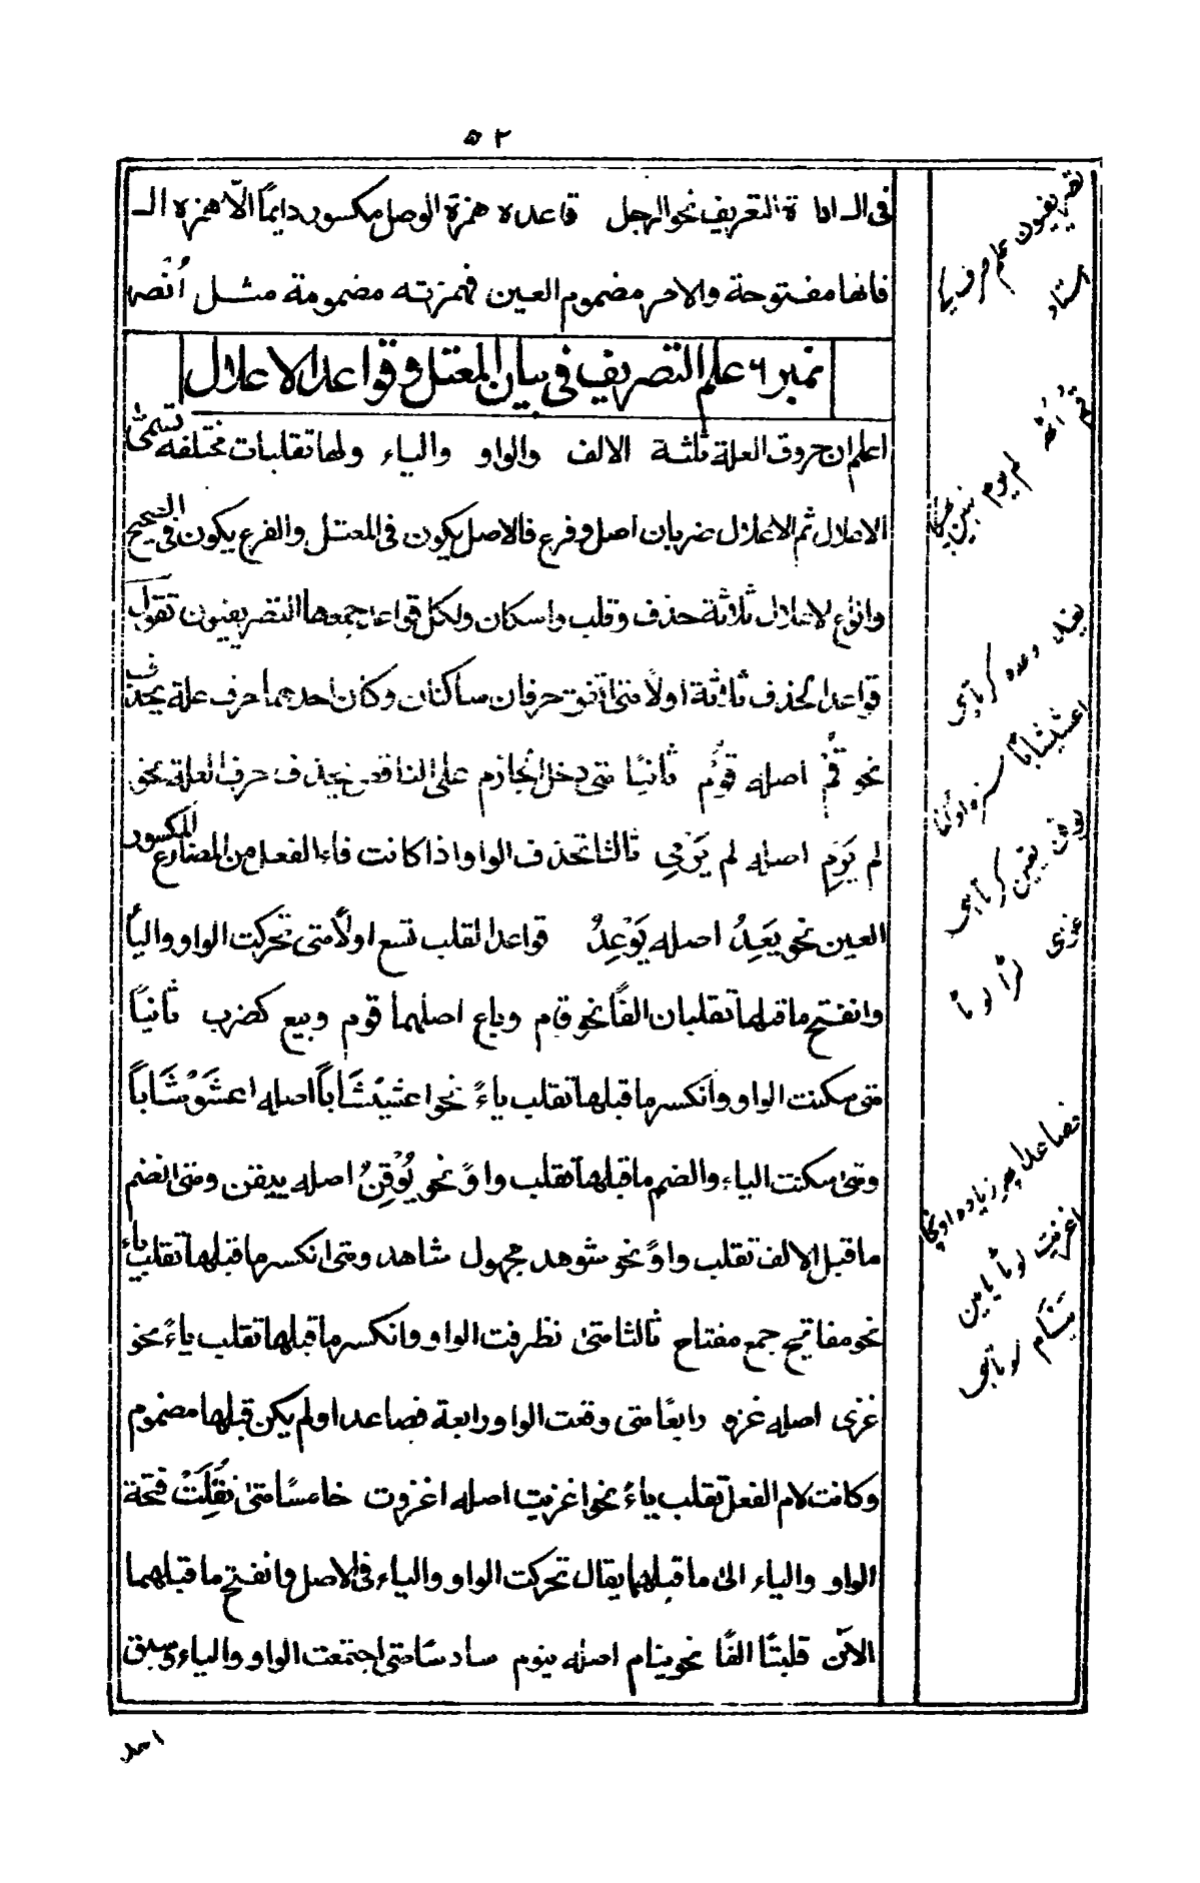 ۵۲
فى الـ اداة التعريف نحو الرجل قاعده همزة الوصل مكسور دايمًا الّا همزه الـ
فانها مفتوحة والامر مضموم العين فهمزته مضمومة مثل اُنْصر
نمبر ۶ علم التصريف فى بيان المعتل وقواعد الاعلال
اعلم ان حروف العلة ثلثة الالف والواو والياء ولها تقلبات مختلفه تسمّى
الاعلال ثم الاعلال ضربان اصل وفرع فالاصل يكون فى المعتل والفرع يكون فى الصحيح
وانواع الاعلال ثلاثة حذف وقلب واسكان ولكل قواعد جمعها التصريفيون تقول
قواعد الحذف ثلاثة اولًا متى اتفق حرفان ساكنان وكان احدهما حرف علة يحذف
نحو قُمْ اصله قوُم ثانيًا متى دخل الجازم على الناقص يحذف حرف العلة نحو
لم يَرَمِ اصله لم يَرْمِي ثالثا تحذف الواو اذا كانت فاء الفعل من المضارع المكسور
العين نحو يَعِدُ اصله يَوْعِدُ قواعد القلب تسع اولًا متى تحركت الواو والياء
وانفتح ما قبلها تقلبان الفًا نحو قام وباع اصلهما قوم وبيع كضرب ثانيًا
متى سكنت الواو وانكسر ما قبلها تقلب ياءً نحو اعشيْشَاباً اصله اعشَوْشَاباً
ومتى سكنت الياء والضم ما قبلها تقلب واوً نحو يُوْقِنُ اصله ييقن ومتى انضم
ما قبل الالف تقلب واوً نحو شوهد مجهول شاهد ومتى انكسر ما قبلها تقلب ياءً
نحو مفاتيح جمع مفتاح ثالثا متى تطرفت الواو وانكسر ما قبلها تقلب ياءً نحو
غزى اصله غزو رابعًا متى وقعت الواو رابعة فصاعدا ولم يكن قبلها مضموم
وكانت لام الفعل تقلب ياءً نحو اغزيت اصله اغزوت خامسًا متى نُقِلَتْ فتحة
الواو والياء الى ما قبلهما يقال تحركت الواو والياء فى الاصل وانفتح ما قبلهما
الآن قلبتا الفًا نحو ينام اصله ينوم سادسًا متى اجتمعت الواو والياء وسبق
تصريفيون علم صرف كے
استاد
قم اُٹھ
يعد وعده كرتا هى
يوقن يقين كرتا هى
فصاعدا پهر زياده